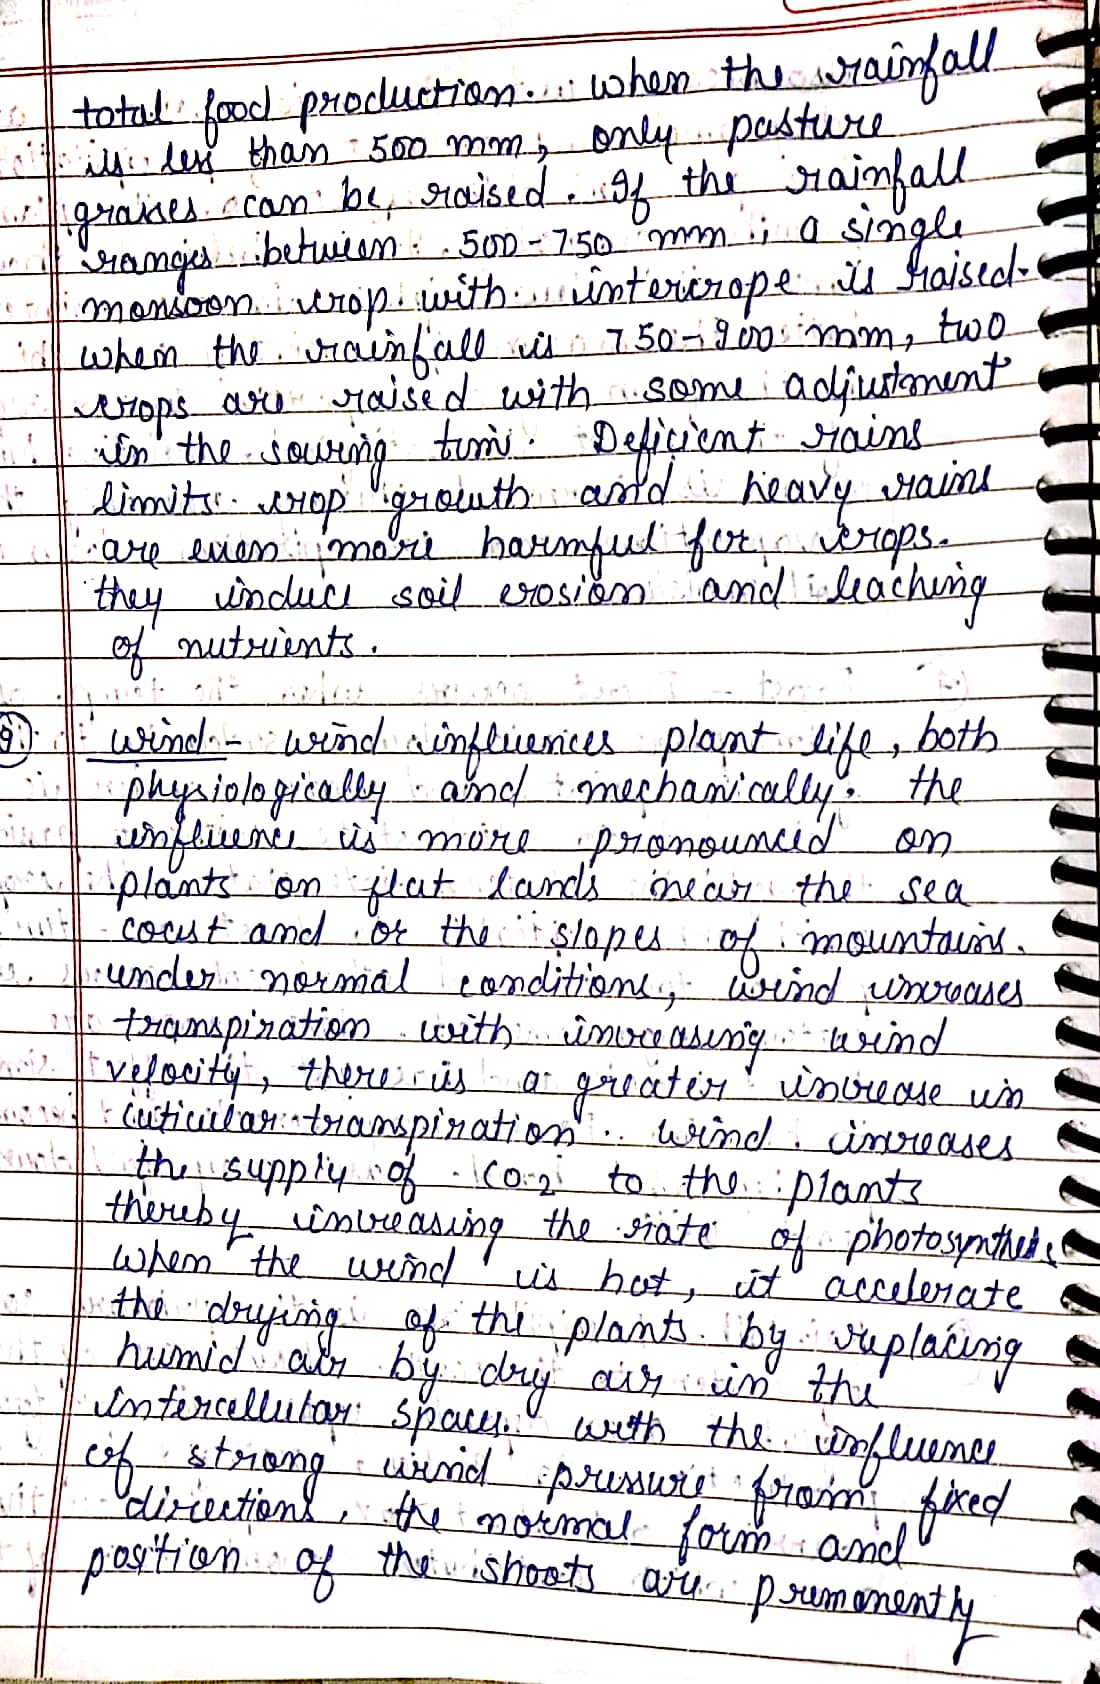 total food production. when the rainfall
is less than 500 mm, only pasture
grasses can be raised. If the rainfall
ranges between 500-750 mm, a single
monsoon crop with intercrope is raised.
when the rainfall is 750-900 mm, two
crops are raised with some adjustment
in the sowing time. Deficient rains
limits crop growth and heavy rains
are even more harmful for crops.
they induce soil erosion and leaching
of nutrients.
9. wind - wind influences plant life, both
physiologically and mechanically. the
influence is more pronounced on
plants on flat lands near the sea
coast and or the slopes of mountains.
under normal conditions, wind increases
transpiration with increasing wind
velocity, there is a greater increase in
cuticular transpiration. wind increases
the supply of CO2 to the plants
thereby increasing the rate of photosynthesis
when the wind is hot, it accelerate
the drying of the plants by replacing
humid air by dry air in the
intercellular spaces. with the influence
of strong wind pressure from fixed
directions, the normal form and
position of the shoots are premanently